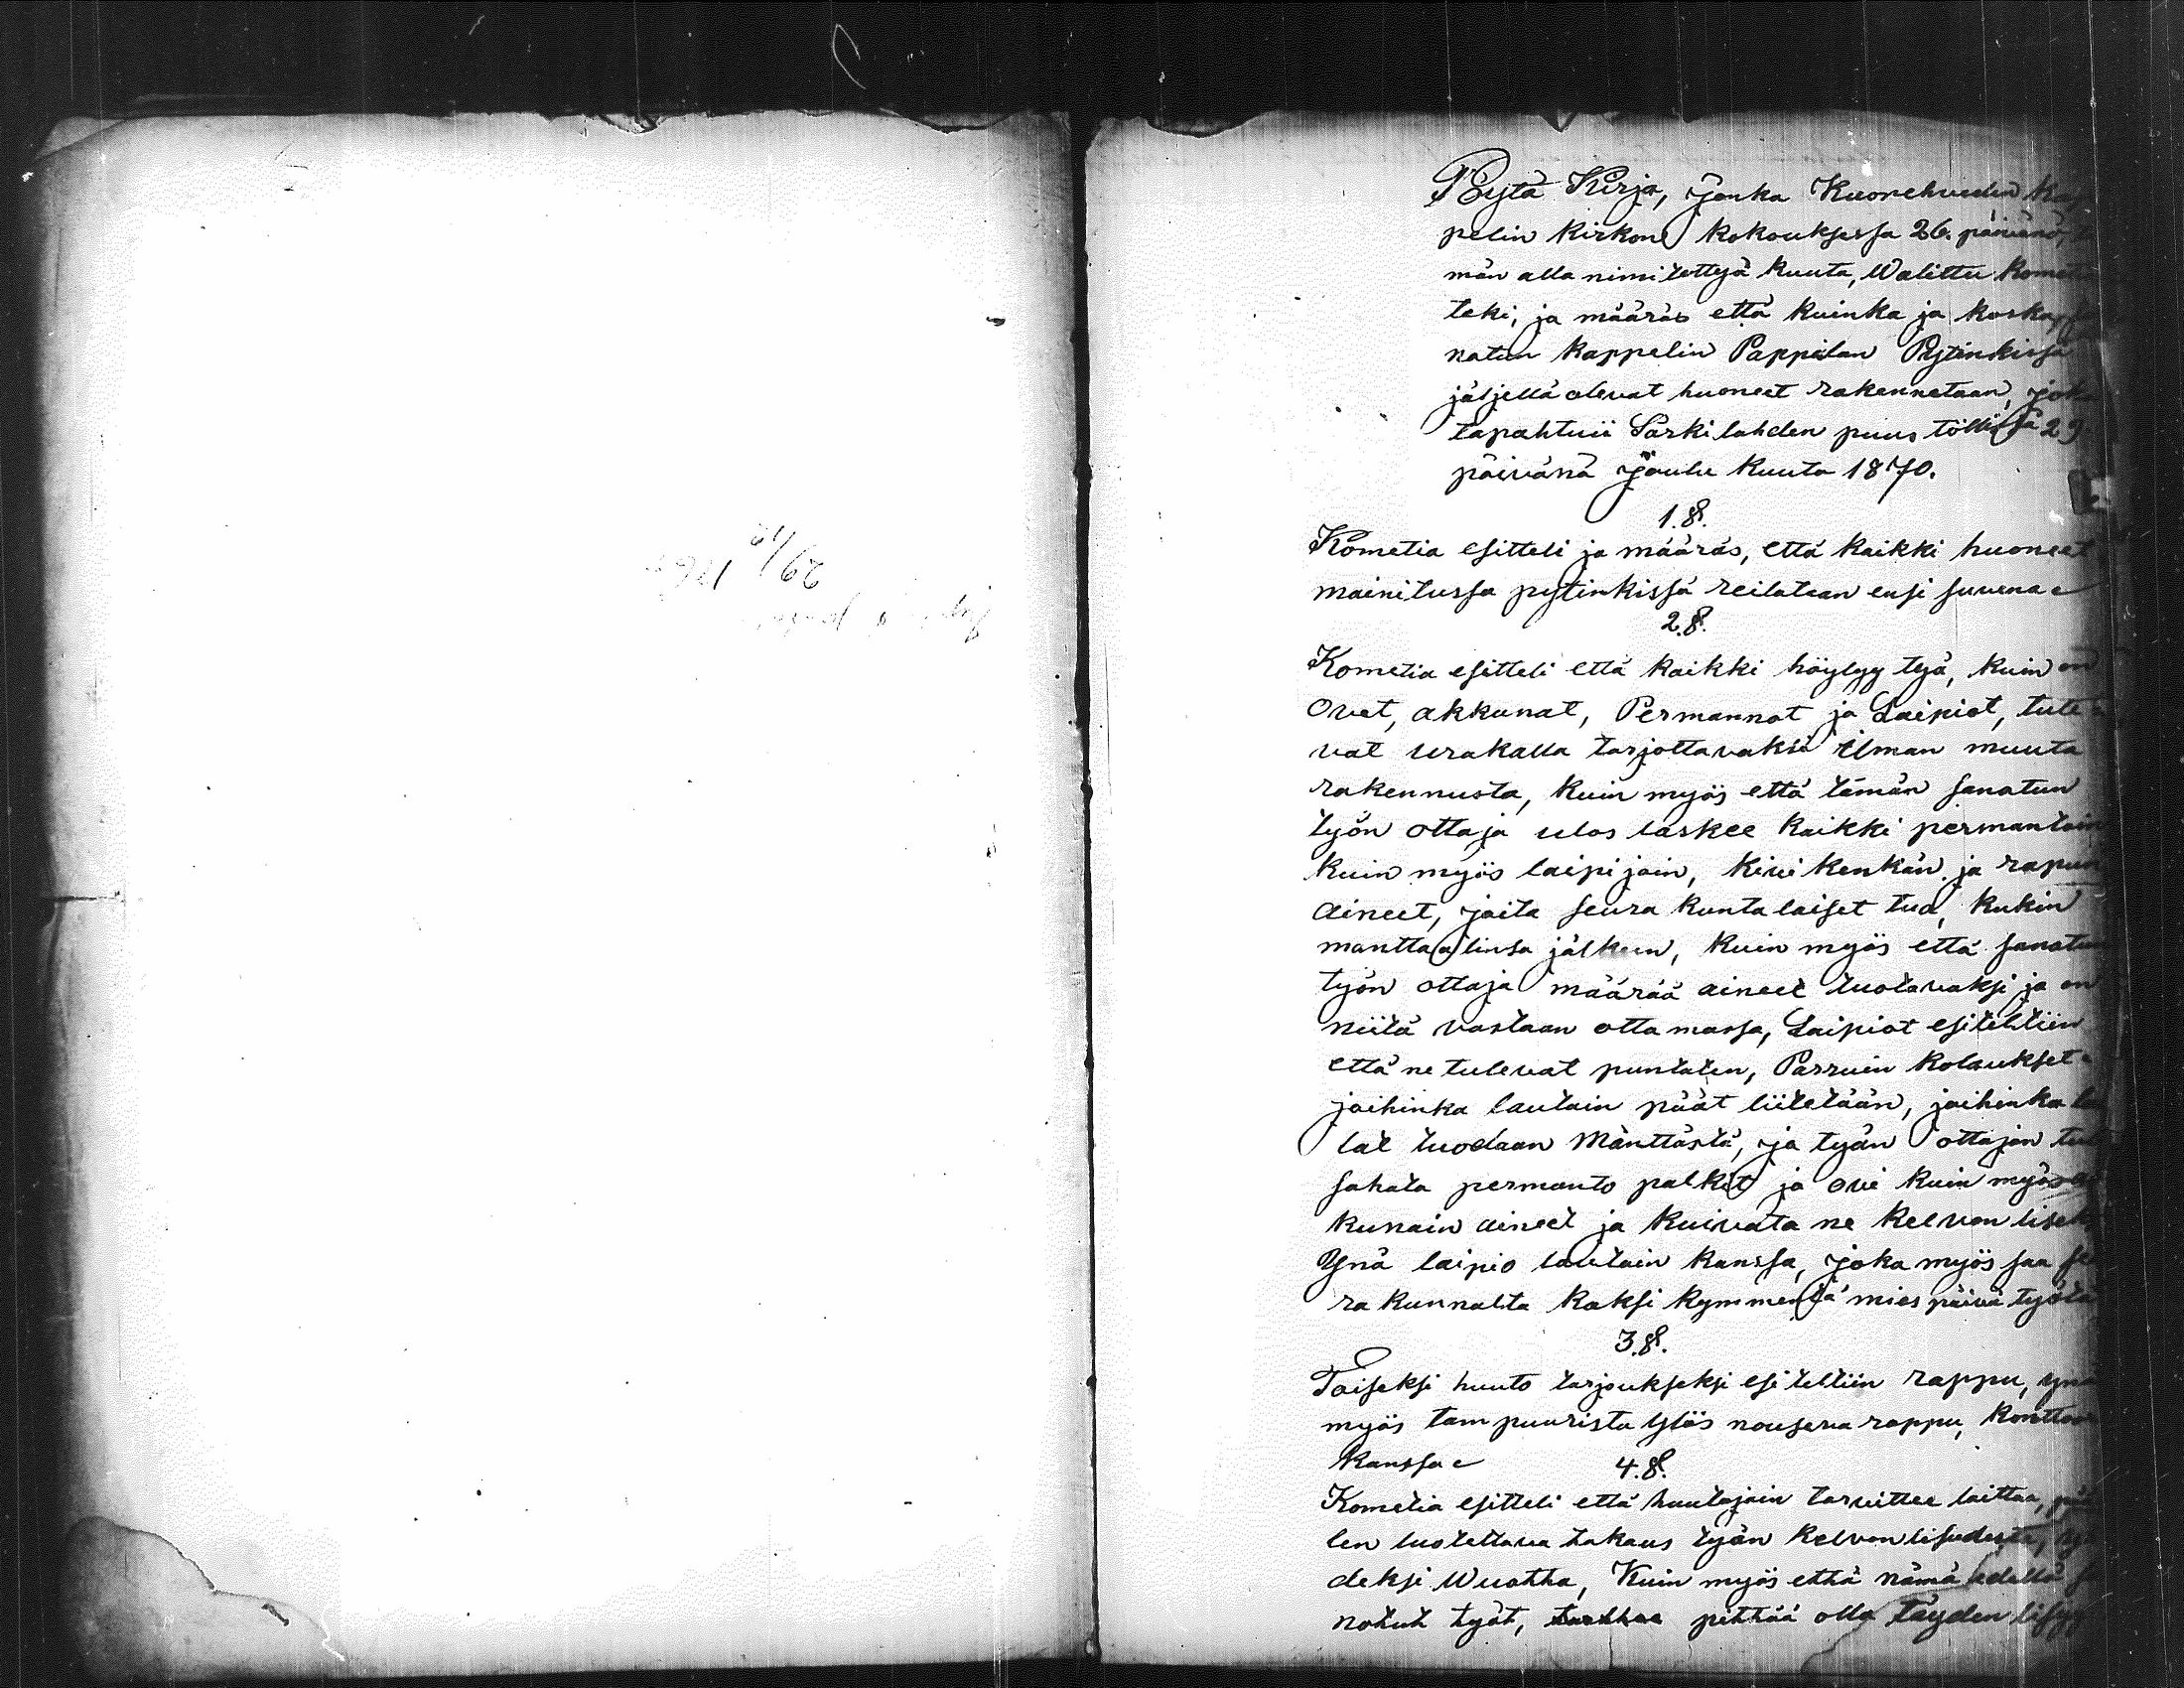 Pöytä Kirja, Jonka Kuorehveden Kap
pelin Kirkon Kokouksessa 26. päivänä,
män alla nimitettyä kuuta, Walittu Kometia
teki, ja määräs että kuinka ja koska
natun Kappelin Pappilan Pytinkissä
jäljellä olevat huoneet rakennetaan, joka
tapahtuii Särkilahden puus töllissä 29
päivänä Joulu Kuuta 1870.
1.§.
Kometia esitteli ja määräs, että kaikki huoneet
mainitussa pytinkissä reilataan ensi suvena
2.§.
Kometia esitteli että kaikki höylyy työ, kuin on
Ovet, akkunat, Permannot ja Laipiot, tule
vat urakalla tarjottavaksi ilman muuta
rakennusta, kuin myös että tämän sanatun
työn ottaja ulos laskee kaikki permantoin
kuin myös laipijoin, kivi kenkän ja rapun
aineet, joita seura kuntalaiset tua, kukin
manttaalinsa jälkeen, kuin myös että sanatun
työn ottaja määrää aineet tuotavaksi ja on
niitä vastaan ottamassa, Laipiot esitettiin
että ne tulevat puntaten, Parruin kolaukset
joihinka lautain päät liitetään, joihinka
lat tuodaan Mänttästä, ja työn ottajan tul
sahata permanto palkit ja ovi kuin myös ak
kunain aineet ja kuivata ne kelvon liseks
Ynä laipio lautain kanssa, joka myös saa seu
ra kunnalta kaksi kymmentä mies päivä työtä
3.§.
Toiseksi huuto tarjoukseksi esiteltiin rappu, ynä
myös tampuurista ylös nouseva rappu, konttoor
kanssa
4.§.
Kometia esitteli että huutajain tarvittee laittaa,
len luotettava takaus työn kelvon lisudesta,
deksi Wuotta, Kuin myös että nämä edellä sa
notut työt, pittää olla täyden lisyy